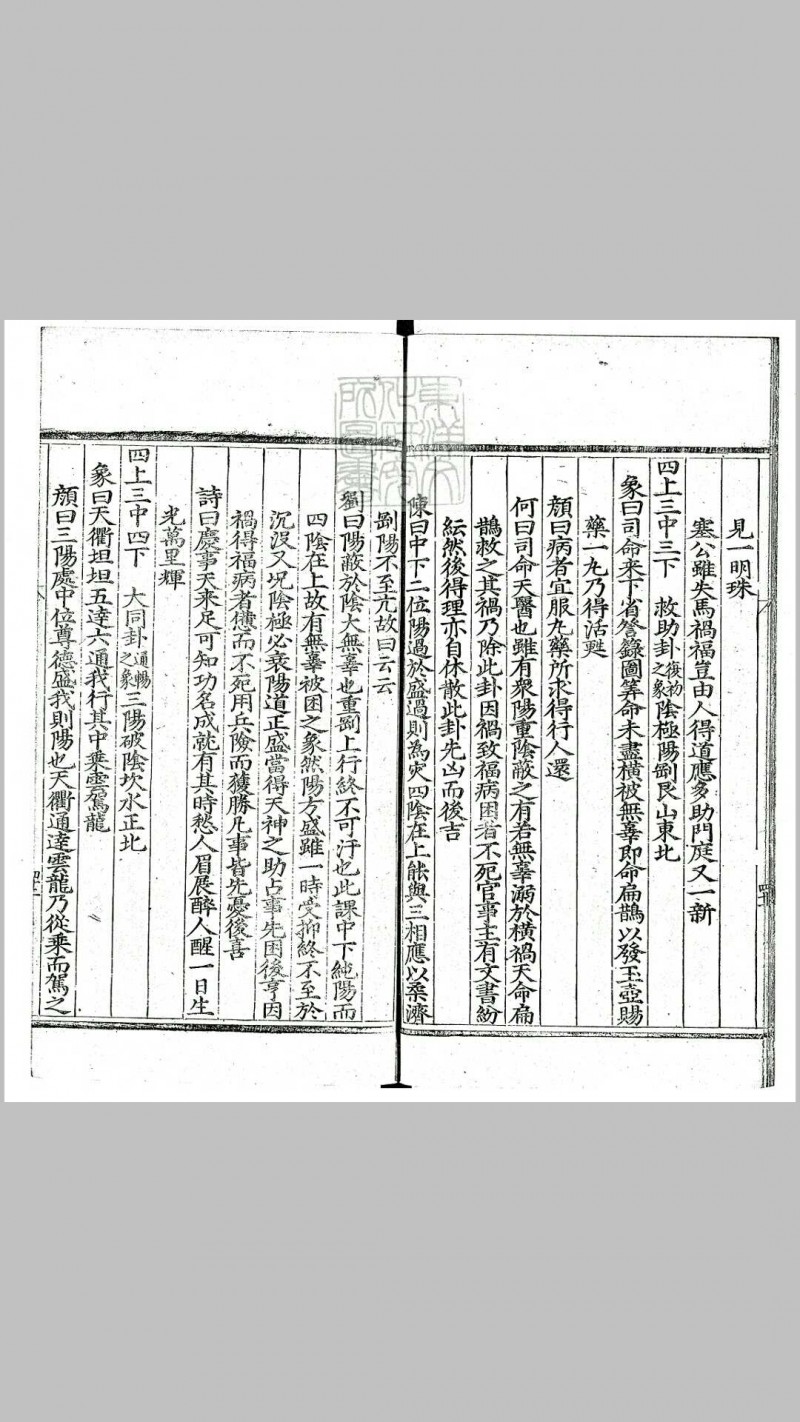 見一明珠
塞公雖失馬禍福豈由人得道應多助門庭又一新
四上三中三下 救助卦復初之象陰極陽剝艮山東北
象曰司命来下省詧錄圖筭命未盡橫被無辜即命扁鵲以發玉壺賜
藥一丸乃得活甦
顔曰病者宜服丸藥所求得行人還
何曰司命天醫也雖有衆陽重陰蔽之有若無辜溺於橫禍天命扁
鵲救之其禍乃除此卦因禍致福病困者不死官事主有文書紛
紜然後得理亦自休散此卦先凶而後吉
陳曰中下二位陽過於盛過則為灾四陰在上能與三相應以柔濟
剝陽不至亢故曰云云
劉曰陽蔽於陰大無辜也重剛上行終不可汙也此課中下純陽而
四陰在上故有無辜被困之象然陽方盛雖一時受抑終不至於
沉没又况陰極必衰陽道正盛當得天神之助占事先困後亨因
禍得福病者憊而不死用兵險而獲勝凡事皆先憂後喜
詩曰慶事天来足可知功名成就有其時愁人眉展醉人醒一日生
光萬里輝
四上三中四下 大同卦通暢之象三陽破陰坎水正北
象曰天衢坦坦五逹六通我行其中乗雲駕龍
顔曰三陽處中位尊德盛我則陽也天衢通逹雲龍乃從乗而駕之